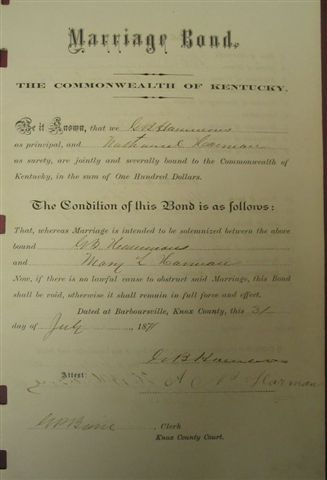 Marriage Bond.
THE COMMONWEALTH OF KENTUCKY.
Be it Known, that we G B Hammons
as principal, and Nathaniel Harman
as surety, are jointly and severally bound to the Commonwealth of
Kentucky, in the sum of One Hundred Dollars.
The Condition of this Bond is as follows:
That, whereas Marriage is intended to be solemnized between the above
bound G B. Hammons
and Mary L Harman
Now, if there is no lawful cause to obstruct said Marriage, this Bond
shall be void, otherwise it shall remain in full force and effect.
Dated at Barboursville, Knox County, this 31
day of July , 187
G B Hammons
Attest: Harman
Clerk
Knox County Court.